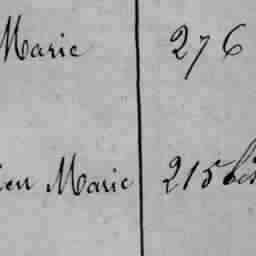 Marie 276
ien Marie 215 bis